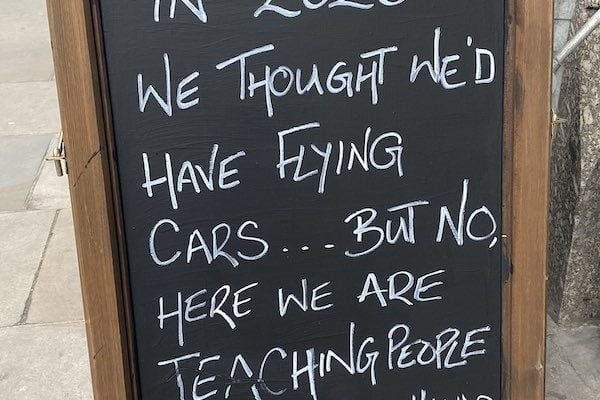 IN 2020
WE THOUGHT WE'D
HAVE FLYING
CARS... BUT NO,
HERE WE ARE
TEACHING PEOPLE